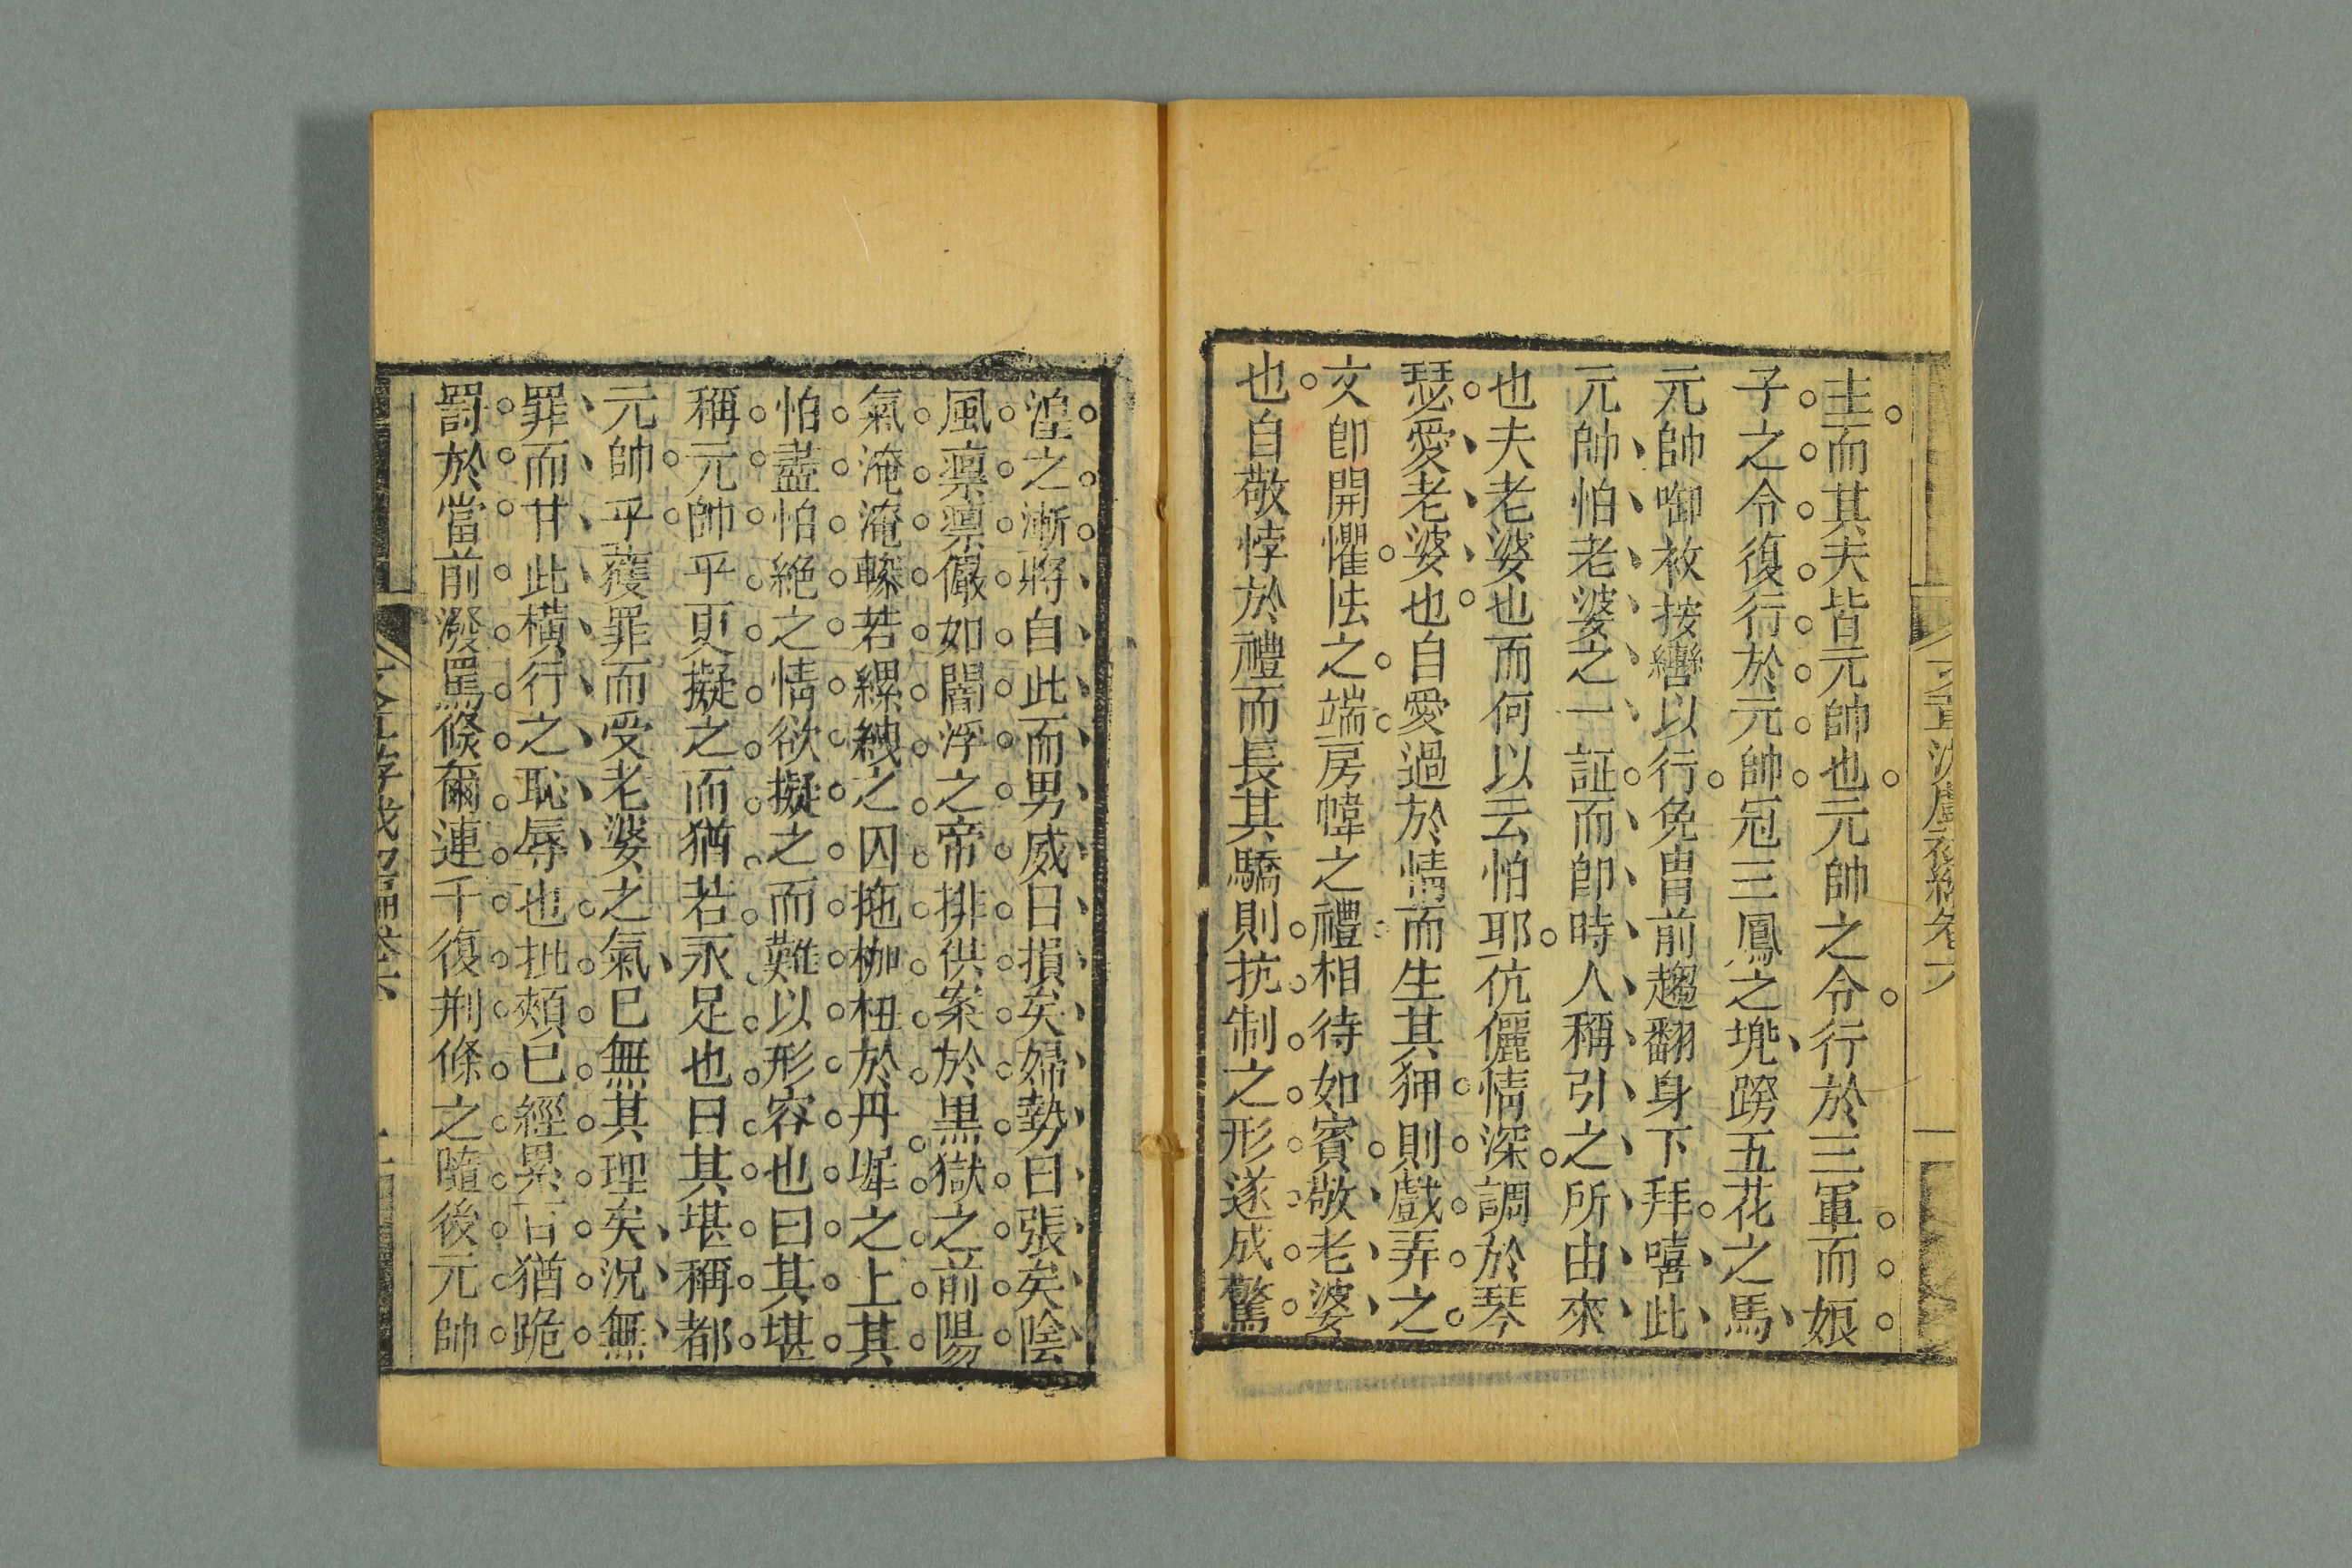 主而其夫皆元帥也元帥之令行於三軍而娘
子之令復行於元帥冠三鳳之堍跨五花之馬
元帥啣枚按轡以行免冑前趨翻身下拜嘻此
元帥怕老婆之一証而卽時人稱引之所由來
也夫老婆也而何以云怕耶伉儷情深調於琴
瑟愛老婆也自愛過於情而生其狎則戲弄之
文卽開懼怯之端房幃之禮相待如賓敬老婆
也自敬悖於禮而長其驕則抗制之形遂成驚
湟之漸將自此而男威日損矣婦勢日張矣陰
風凛凛儼如閻浮之帝排供案於黒獄之前陽
氣淹淹轓若縲絏之囚拖枷杻於丹墀之上其
怕盡怕絶之情欲擬之而難以形容也曰其堪
稱元帥乎更擬之而猶若未足也曰其堪稱都
元帥乎蒦罪而受老婆之氣已無其理矣況無
罪而甘此橫行之恥辱也批頰已經累百猶跪
罰於當前潑罵倏爾連千復荆條之隨後元帥